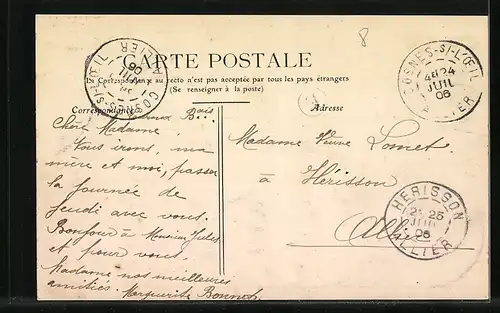 8
CARTE POSTALE
La Correspondance au recto n'est pas acceptée par tous les pays étrangers
(Se renseigner à la poste)
Correspondance
Adresse
COSNES-S/-L'ŒIL
ALLIER
COSNES-S/-L'ŒIL
24
JUIL
06
ALLIER
Bois
Chère Madame,
Vous irons, ma
mère et moi, passer
la journée de
jeudi avec vous.
Bonjour à Monsieur Jules
et pour vous,
Madame nos meilleures
amitiés. Marguerite Bonnet
Madame Veuve Lomet
à Hérisson
Allier
HERISSON
25
JUIL
06
ALLIER